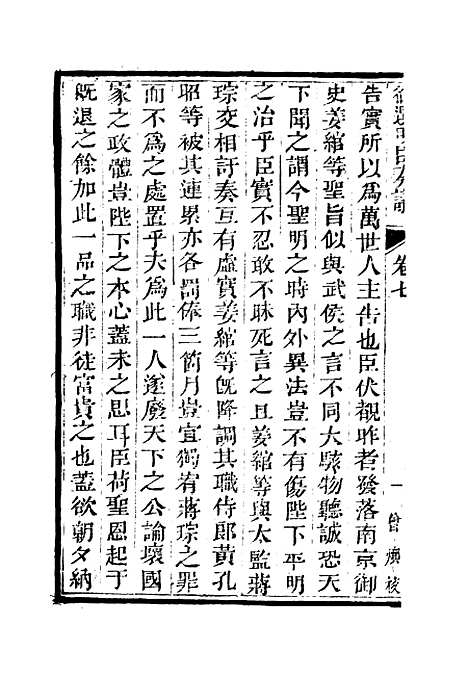 卷七
一
告實所以爲萬世人主告也臣伏覩昨者發落南京御
史姜綰等聖旨似與武侯之言不同大駭物聽誠恐天
下聞之謂今聖明之時內外異法豈不有傷陛下平明
之治乎臣實不忍敢不昧死言之且姜綰等與太監蔣
琮交相訐奏互有虛實姜綰等旣降調其職侍郎黃孔
昭等被其連累亦各罰俸三箇月豈宜獨宥蔣琮之罪
而不爲之處置乎夫爲此一人遂廢天下之公論壞國
家之政體豈陛下之本心蓋未之思耳臣荷聖恩起于
旣退之餘加此一品之職非徒富貴之也蓋欲朝夕納